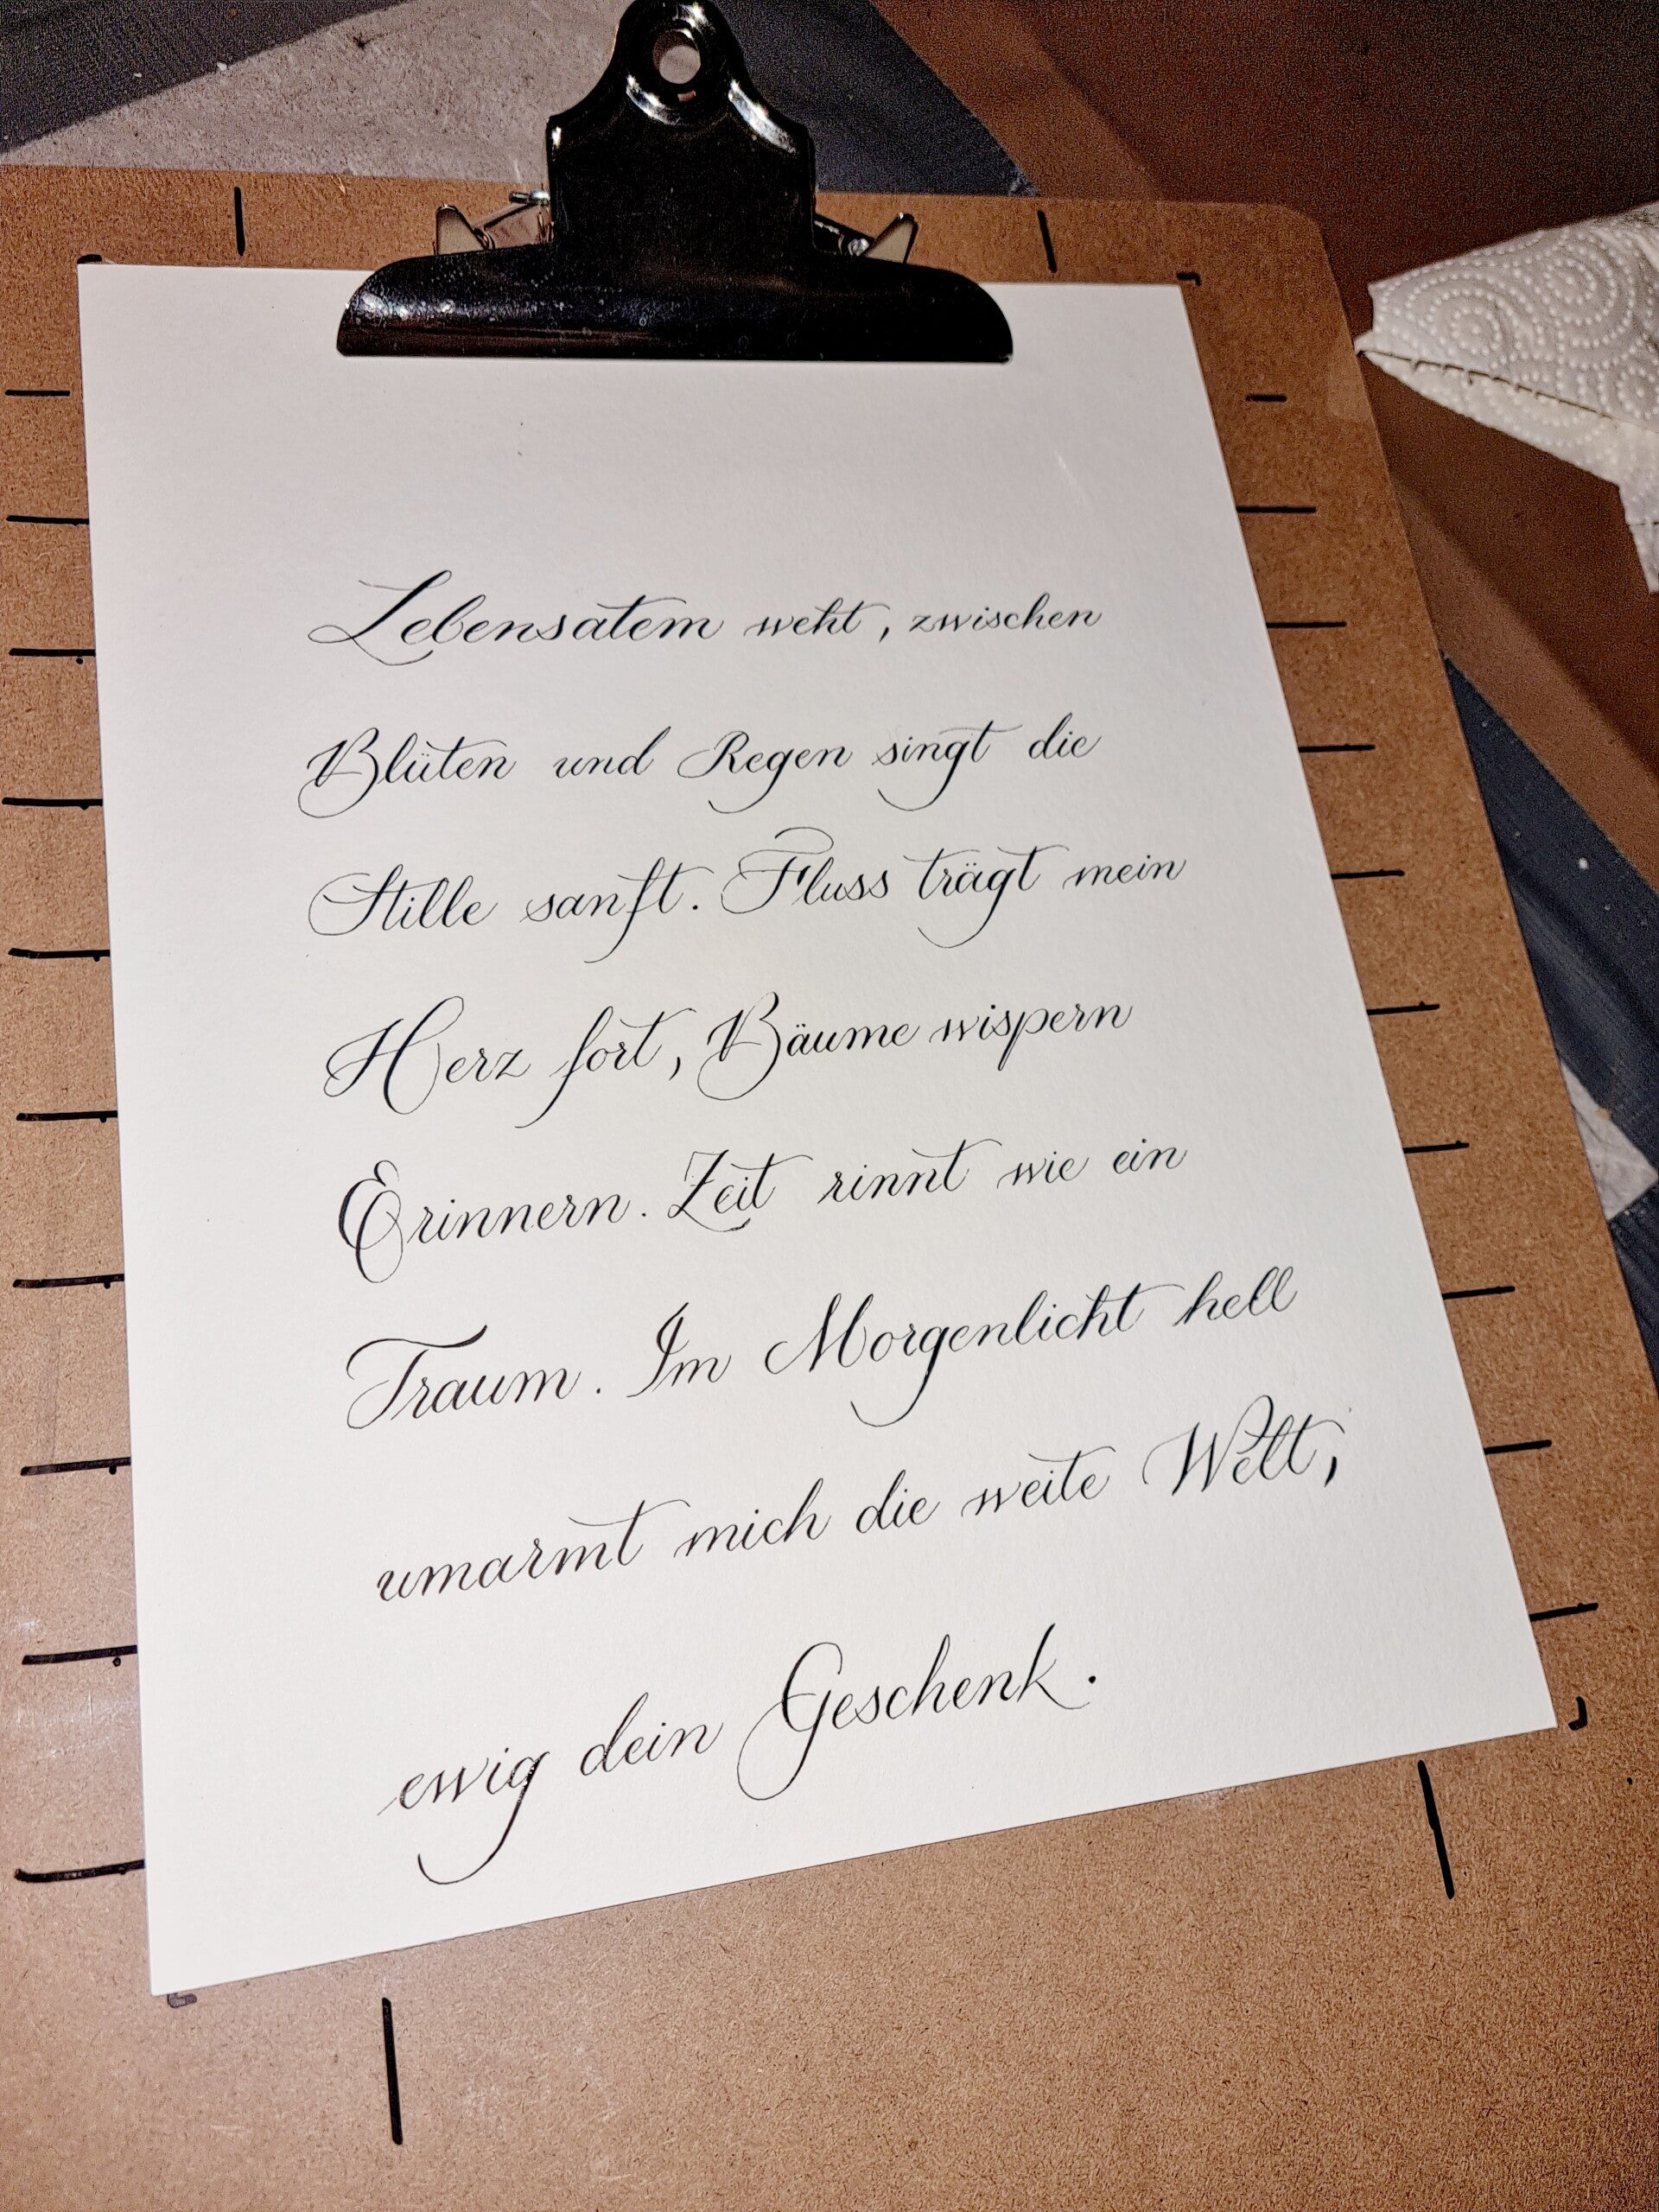 Lebensatem weht, zwischen
Blüten und Regen singt die
Stille sanft. Fluss trägt mein
Herz fort, Bäume wispern
Erinnern. Zeit rinnt wie ein
Traum. Im Morgenlicht hell
umarmt mich die weite Welt,
ewig dein Geschenk.